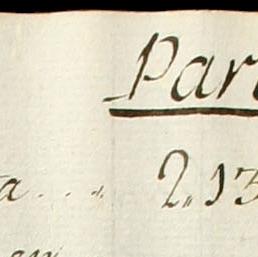 Par
a . . . 2.13